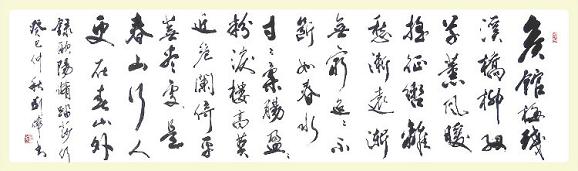 候館梅殘
溪橋柳細
草薰風暖
搖征轡離
愁漸遠漸
無窮迢〻不
斷如春水
寸〻柔腸盈〻
粉淚樓高莫
近危闌倚平
蕪盡處是
春山行人
更在春山外
錄歐陽脩踏莎行
癸巳仲秋劉書